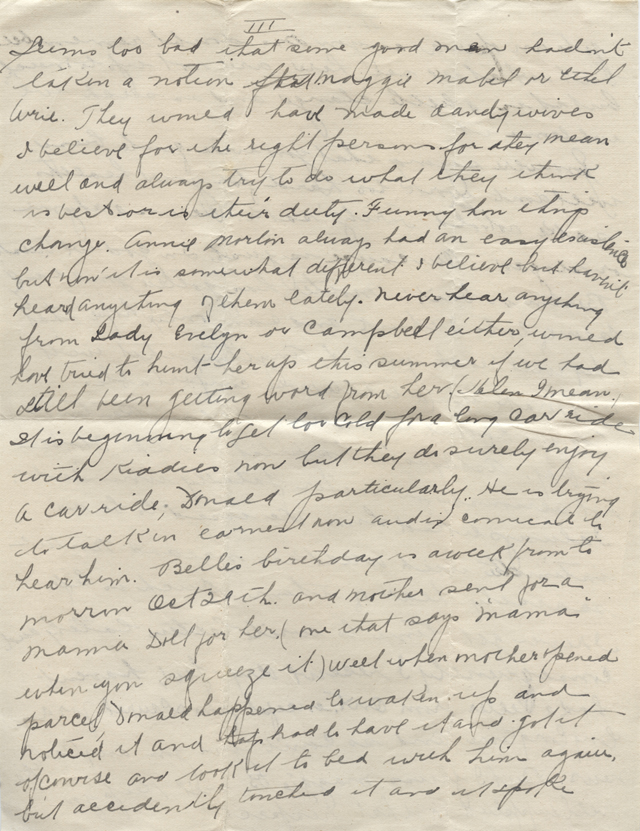 III
Seems too bad that some good man hadn't
taken a notion that Maggie Mabel or Ethel
They would have made dandy wives
I believe for the right persons for they mean
well and always try to do what they think
is best or is their duty. Funny how things
change. Annie Morton always had an easy
but now it is somewhat different I believe but haven't
heard anything of them lately. Never hear anything
from Lady Evelyn or Campbell either, would
have tried to hunt her up this summer if we had
still been getting word from her (Helen I mean.)
It is beginning to get too cold for a long car ride
with Kiddies now but they do surely enjoy
a car ride, Donald particularly. He is trying
to talk in earnest now and is comical to
hear him. Belle's birthday is a week from to
morrow Oct 29th. and mother sent for a
mamma Doll for her. (one that says "mama"
when you squeeze it) Well when mother opened
parcel Donald happened to waken up and
noticed it and had to have it and got it
of course and took it to bed with him again,
but accidently touched it and it spoke